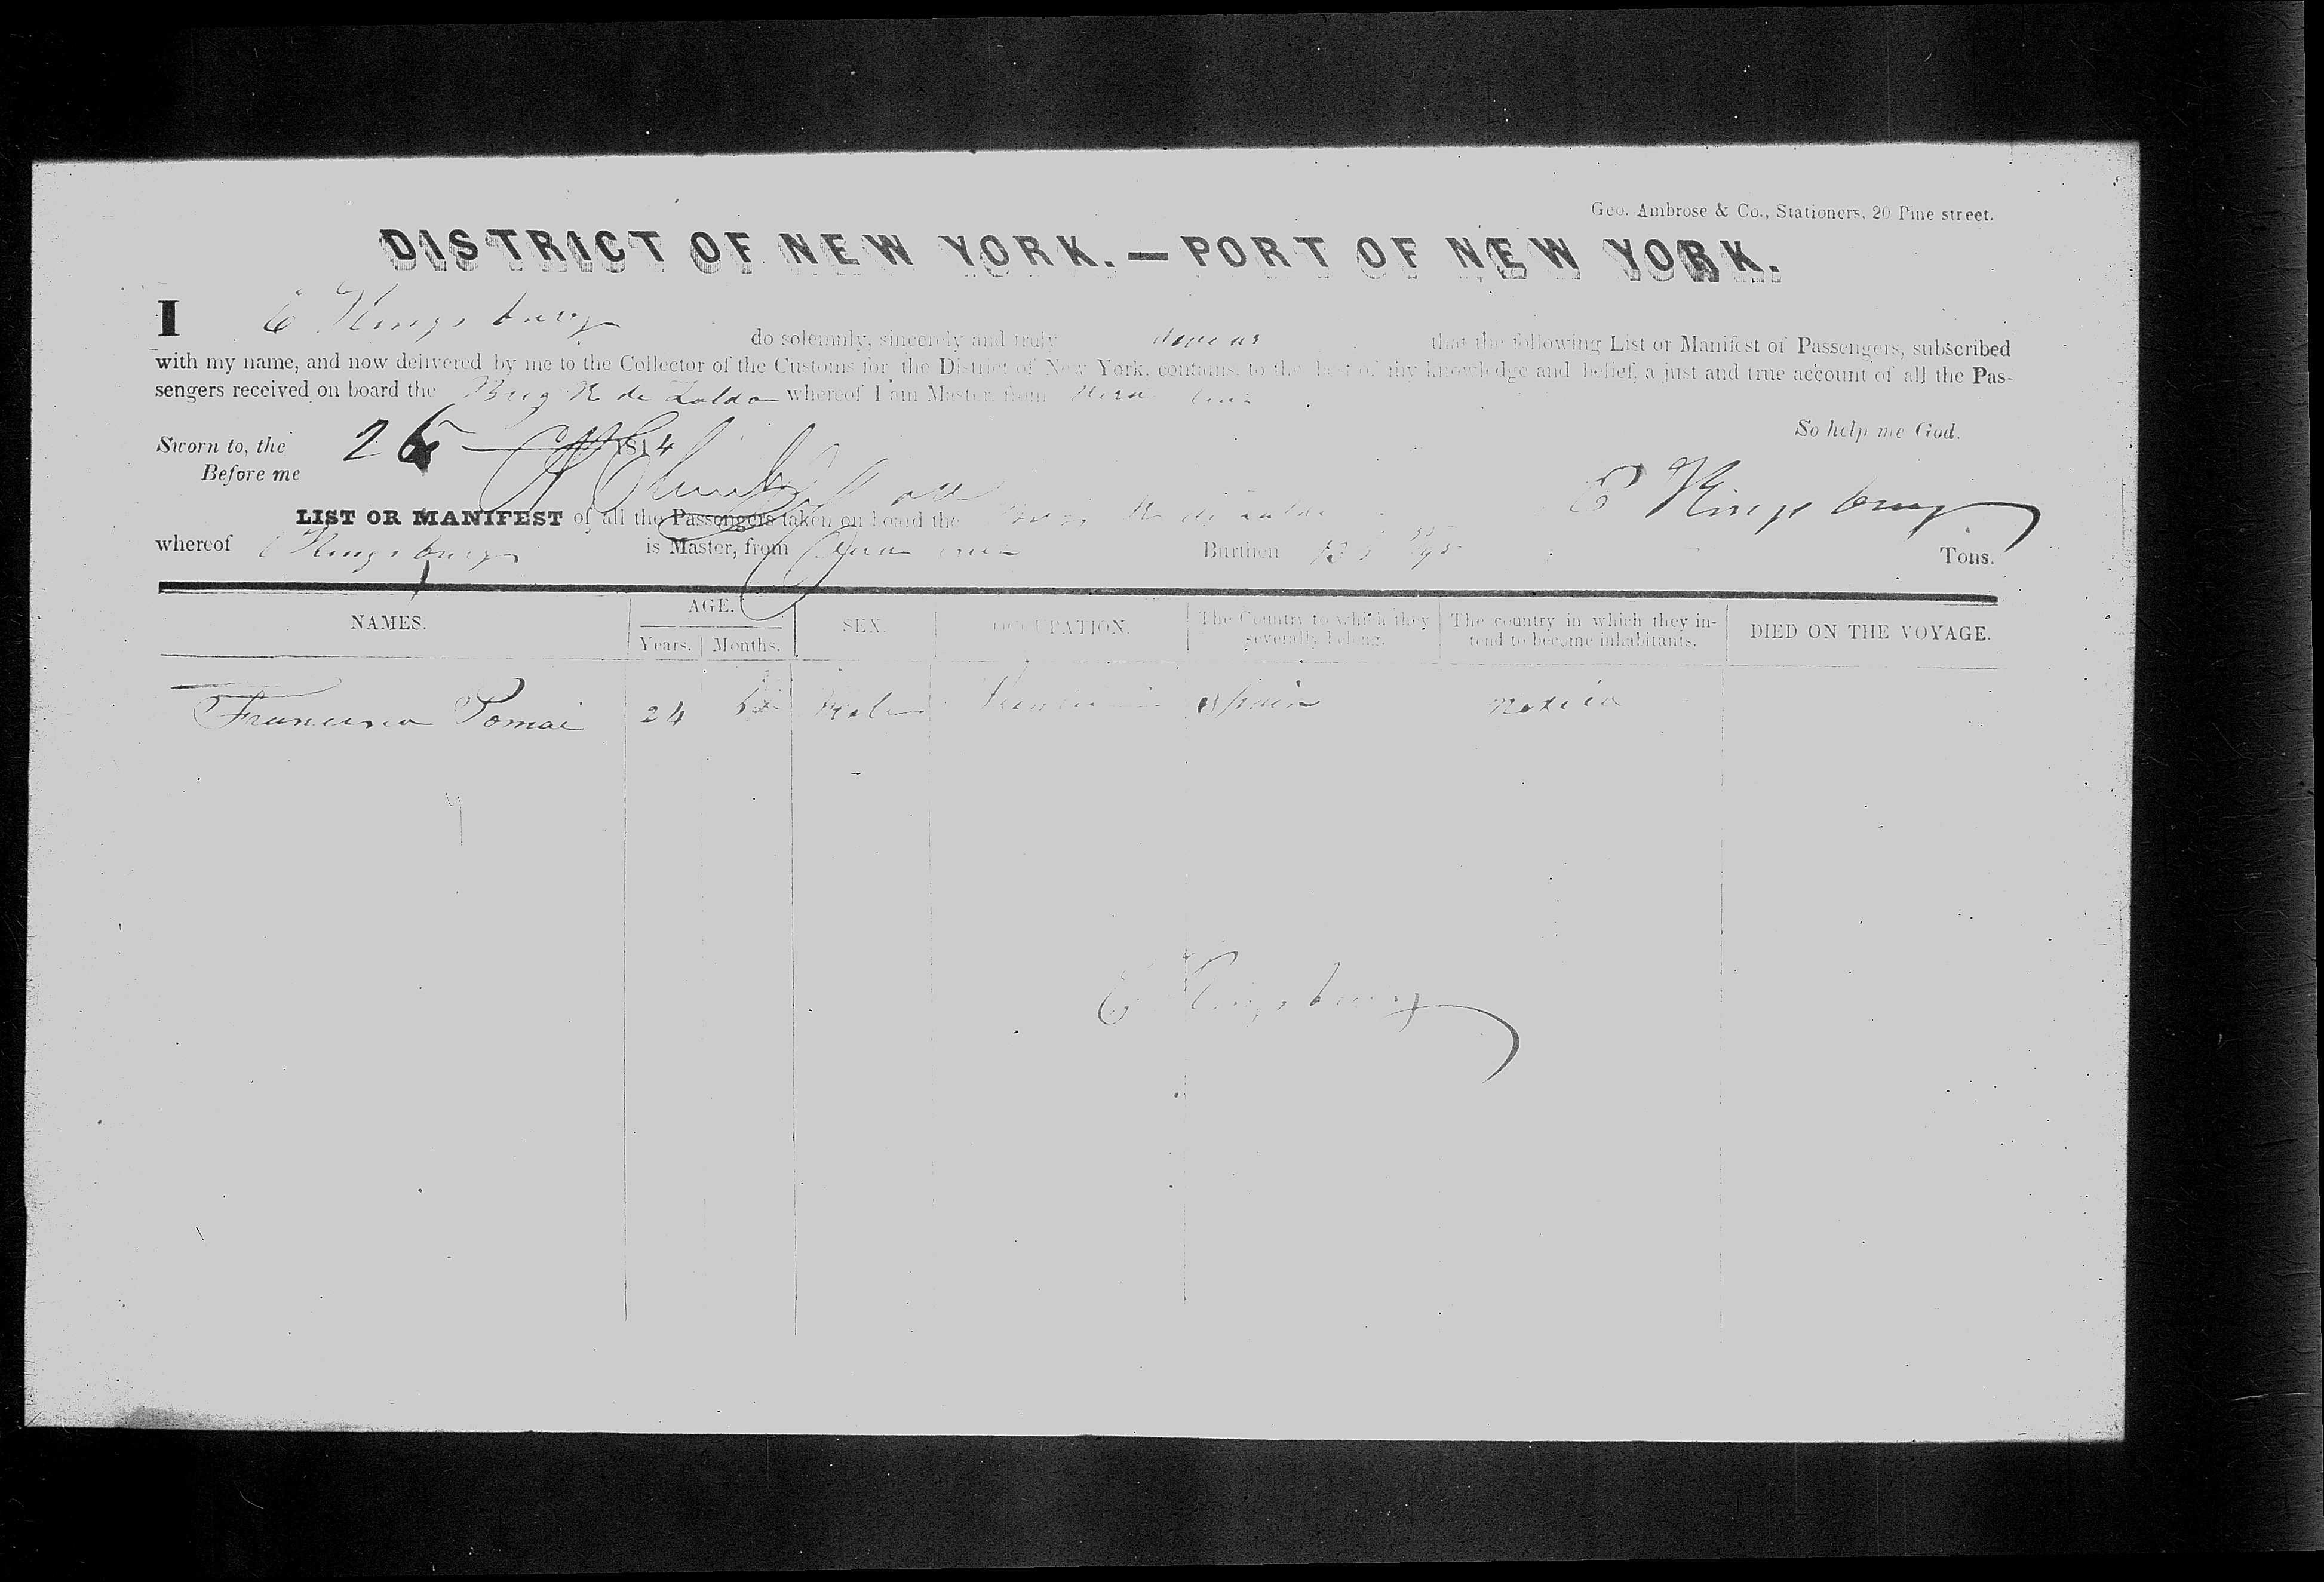 Geo. Ambrose & Co., Stationers, 20 Pine street.
DISTRICT OF NEW YORK.—PORT OF NEW YORK.
I E Kingsbury do solemnly, sincerely and truly that the following List or Manifest of Passengers, subscribed
with my name, and now delivered by me to the Collector of the Customs for the District of New York, contains, to the best of my knowledge and belief, a just and true account of all the Pas-
sengers received on board the Brig R de Zaldo whereof I am Master, from Vera Cruz
So help me God.
Sworn to, the 26 1814
Before me
E Kingsbury
LIST OR MANIFEST of all the Passengers taken on board the R de Zaldo
whereof E Kingsbury is Master, from Vera Cruz Burthen Tons.
NAMES. AGE. SEX. OCCUPATION. The Country to which they severally belong. The country in which they in-tend to become inhabitants. DIED ON THE VOYAGE.
Years. Months.
Francisco Pomai 24 Male Spain Mexico
E Kingsbury